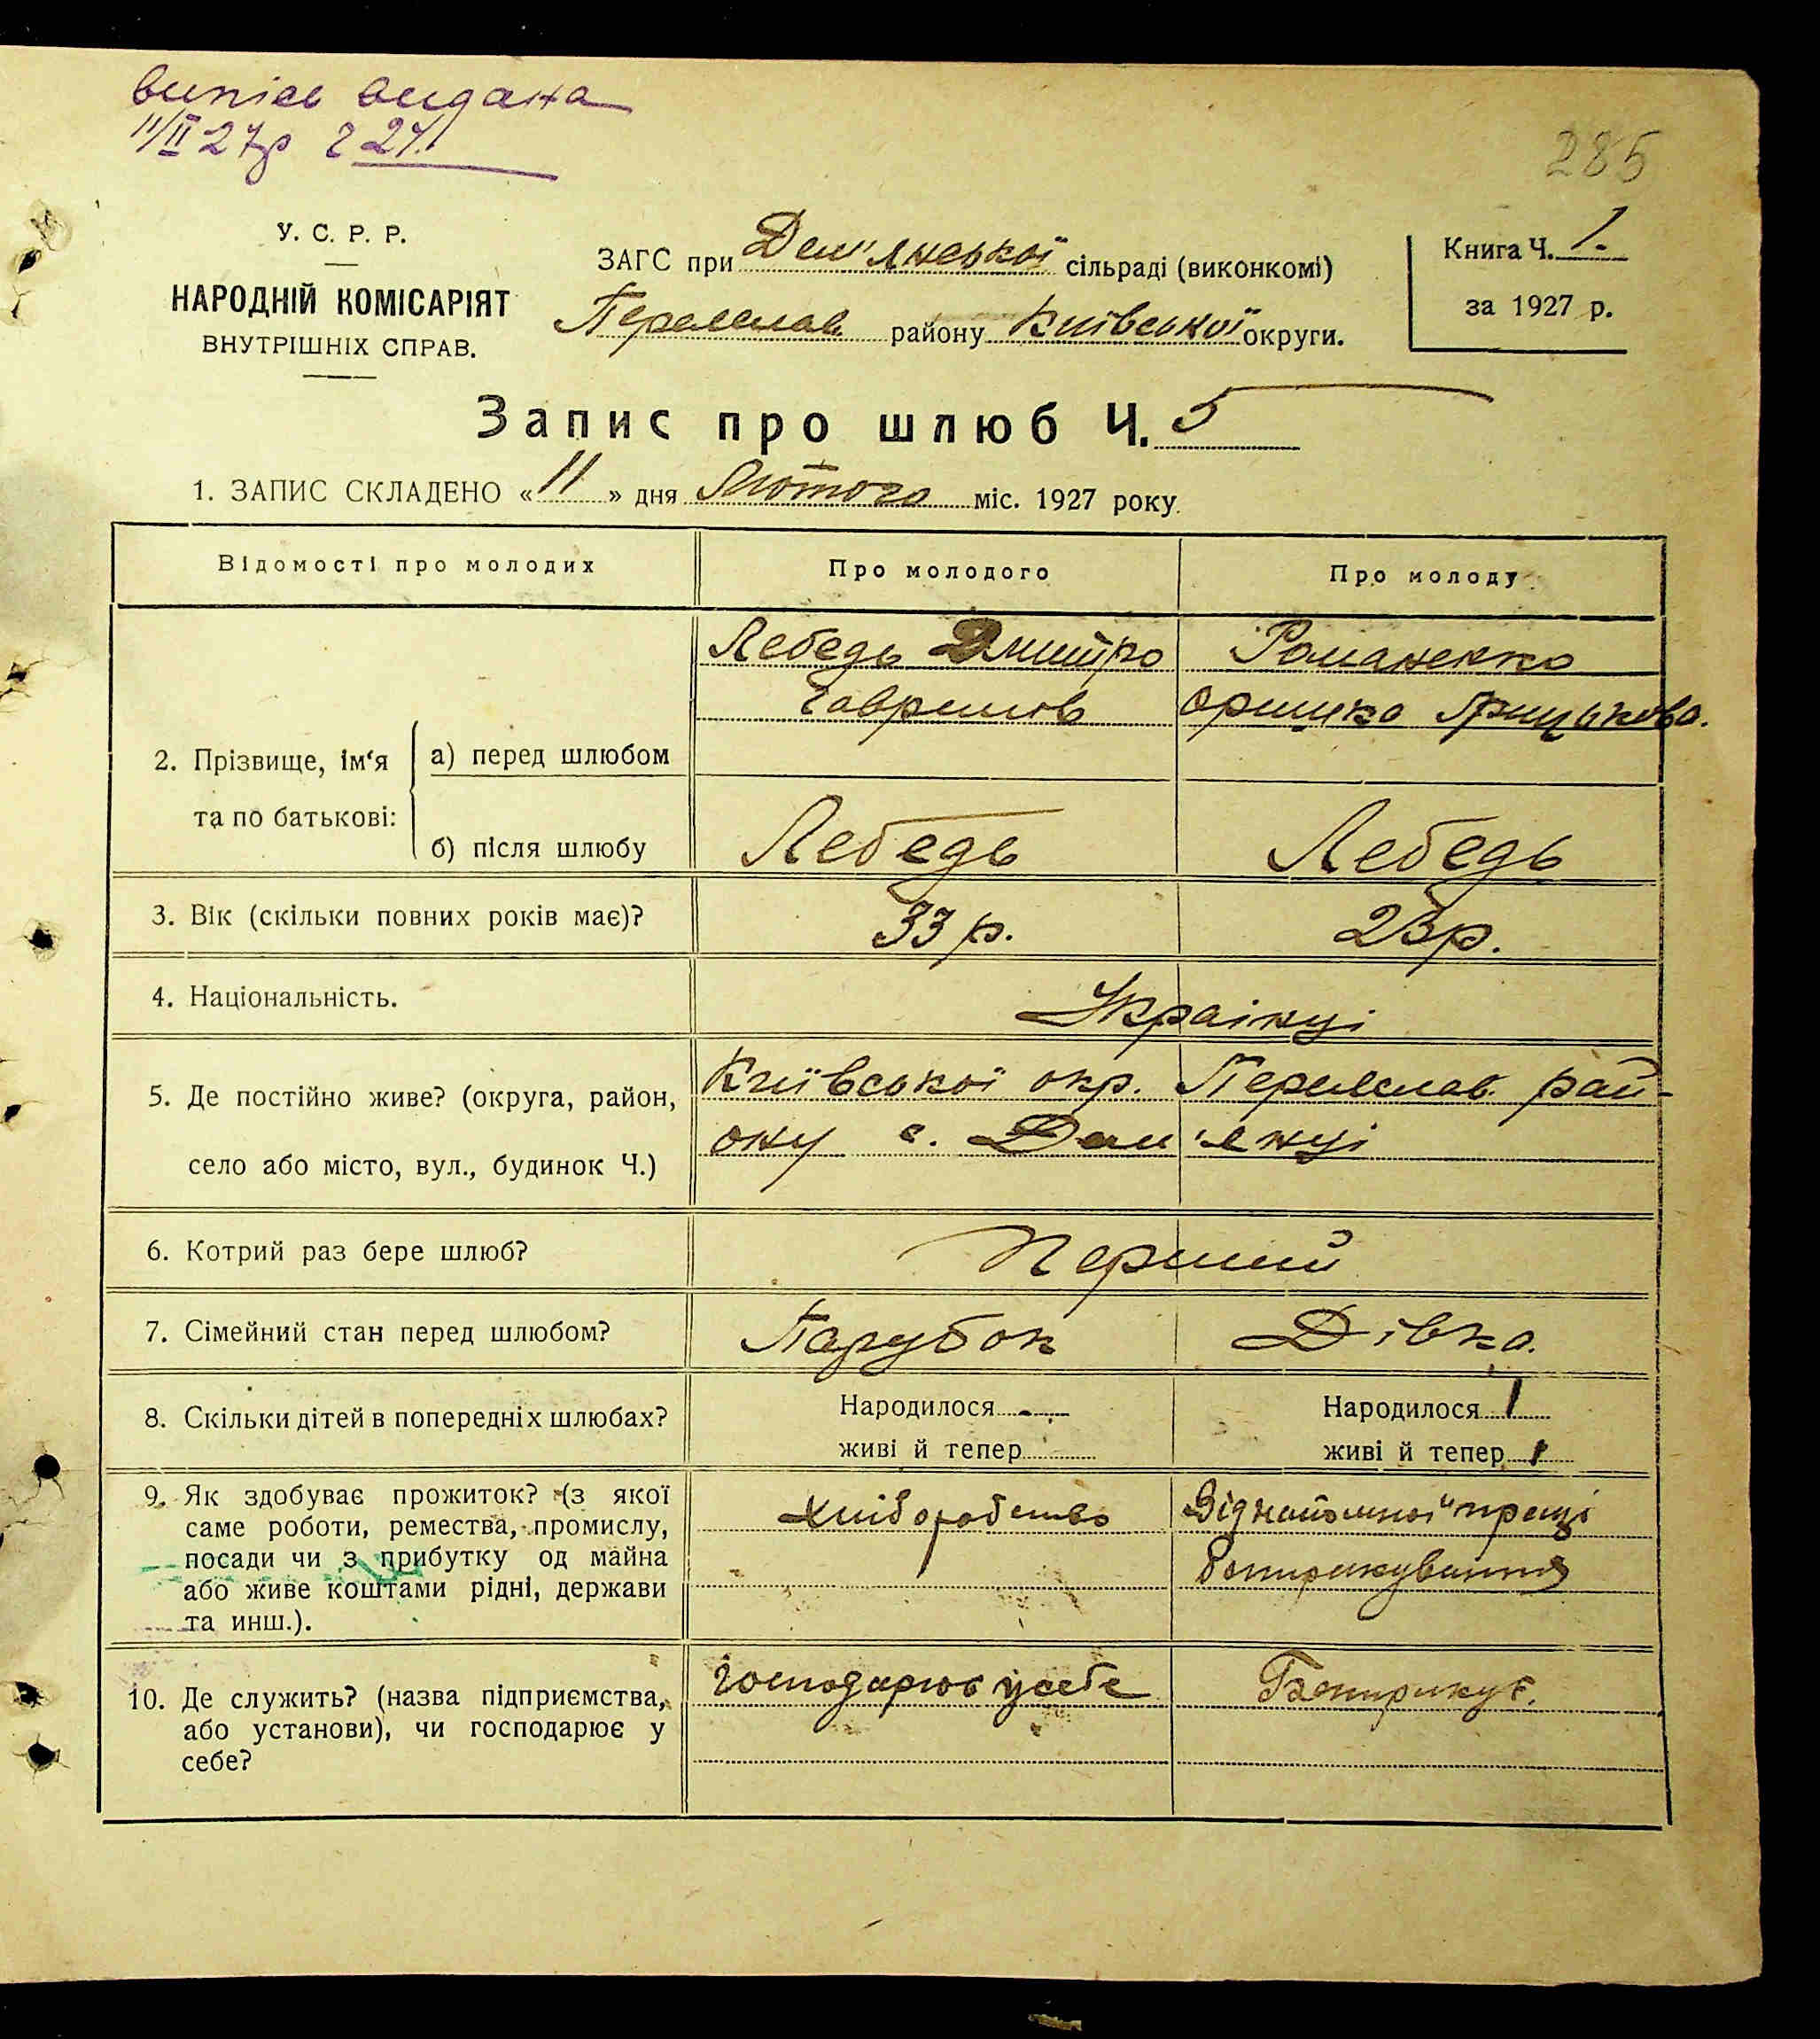 випісь видана
11/II 27р Ч 27.
285
У. С. Р. Р.
НАРОДНІЙ КОМІСАРІЯТ
ВНУТРІШНІХ СПРАВ.
ЗАГС при Дем'янської сільраді (виконкомі)
Переяслав району Київської округи.
Книга Ч. 1.
за 1927 р.
Запис про шлюб Ч. 5
1. ЗАПИС СКЛАДЕНО « 11 » дня Лютого міс. 1927 року.
Відомості про молодих
Про молодого
Про молоду
2. Прізвище, ім'я та по батькові:
а) перед шлюбом
Лебедь Дмитро
Гаврилов
Романенко
Оришка Грицькова.
б) після шлюбу
Лебедь
Лебедь
3. Вік (скільки повних років має)?
33 р.
23 р.
4. Національність.
Українці
5. Де постійно живе? (округа, район,
село або місто, вул., будинок Ч.)
Київської окр. Переяслав. рай-
ону с. Дем'янці
6. Котрий раз бере шлюб?
Перший
7. Сімейний стан перед шлюбом?
Парубок
Дівка.
8. Скільки дітей в попередніх шлюбах?
Народилося -
живі й тепер
Народилося 1
живі й тепер 1
9. Як здобуває прожиток? (з якої
саме роботи, ремества, промислу,
посади чи з прибутку од майна
або живе коштами рідні, держави
та инш.).
Хліборобство
Від найомної праці
10. Де служить? (назва підприємства,
або установи), чи господарює у
себе?
Господарює у себе